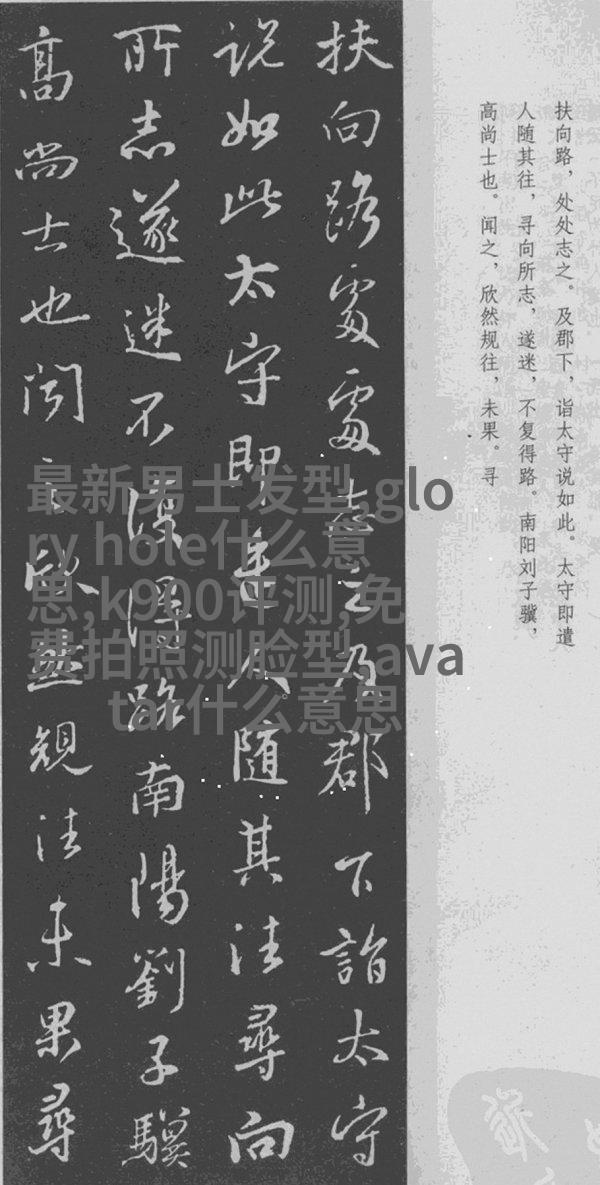 扶向路處處志之及郡下詣太守
说如此太守即遣人随其往尋向
所志遂迷不復得路南陽劉子驥
高尚士也闻之欣然規往未果尋
扶向路，处处志之。及郡下，诣太守说如此。太守即遣
人随其往，寻向所志，遂迷，不复得路。南阳刘子骥，
高尚士也。闻之，欣然规往，未果。寻
最新男士发型,glo
ry hole什么意
思,k900评测,免
费拍照测脸型,ava
tar什么意思